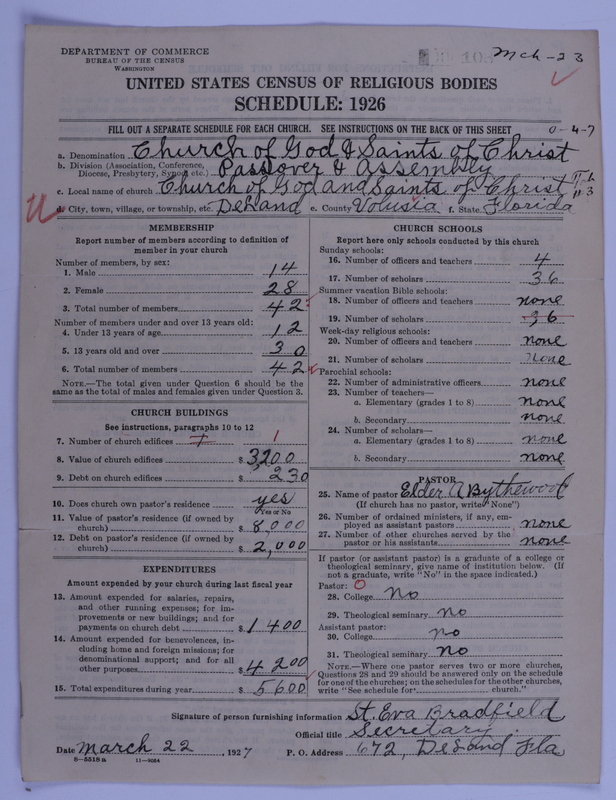 DEPARTMENT OF COMMERCE
BUREAU OF THE CENSUS
WASHINGTON
Mch-23
UNITED STATES CENSUS OF RELIGIOUS BODIES
SCHEDULE: 1926
FILL OUT A SEPARATE SCHEDULE FOR EACH CHURCH. SEE INSTRUCTIONS ON THE BACK OF THIS SHEET
0-4-7
a. Denomination Church of God & Saints of Christ
b. Division (Association, Conference, Diocese, Presbytery, Synod, etc.) Passover & Assembly
c. Local name of church Church of God and Saints of Christ
d. City, town, village, or township, etc. DeLand e. County Volusia f. State Florida
MEMBERSHIP
Report number of members according to definition of
member in your church
Number of members, by sex:
1. Male 14
2. Female 28
3. Total number of members 42
Number of members under and over 13 years old:
4. Under 13 years of age 12
5. 13 years old and over 30
6. Total number of members 42
NOTE.—The total given under Question 6 should be the
same as the total of males and females given under Question 3.
CHURCH BUILDINGS
See instructions, paragraphs 10 to 12
7. Number of church edifices 1
8. Value of church edifices $ 3200
9. Debt on church edifices $ 230
10. Does church own pastor's residence yes
Yes or No
11. Value of pastor's residence (if owned by
church) $ 8,000
12. Debt on pastor's residence (if owned by
church) $ 2,000
EXPENDITURES
Amount expended by your church during last fiscal year
13. Amount expended for salaries, repairs,
and other running expenses; for im-
provements or new buildings; and for
payments on church debt $ 1400
14. Amount expended for benevolences, in-
cluding home and foreign missions; for
denominational support; and for all
other purposes $ 4200
15. Total expenditures during year $ 5600
CHURCH SCHOOLS
Report here only schools conducted by this church
Sunday schools:
16. Number of officers and teachers 4
17. Number of scholars 36
Summer vacation Bible schools:
18. Number of officers and teachers none
19. Number of scholars 36
Week-day religious schools:
20. Number of officers and teachers none
21. Number of scholars none
Parochial schools:
22. Number of administrative officers none
23. Number of teachers—
a. Elementary (grades 1 to 8) none
b. Secondary none
24. Number of scholars—
a. Elementary (grades 1 to 8) none
b. Secondary none
PASTOR
25. Name of pastor Elder A Bythewood
(If church has no pastor, write "None")
26. Number of ordained ministers, if any, em-
ployed as assistant pastors none
27. Number of other churches served by the
pastor or his assistants none
If pastor (or assistant pastor) is a graduate of a college or
theological seminary, give name of institution below. (If
not a graduate, write "No" in the space indicated.)
Pastor: 0
28. College No
29. Theological seminary no
Assistant pastor:
30. College no
31. Theological seminary no
NOTE.—Where one pastor serves two or more churches,
Questions 28 and 29 should be answered only on the schedule
for one of the churches; on the schedules for the other churches,
write "See schedule for church."
Signature of person furnishing information St. Eva Bradfield
Official title Secretary
Date march 22, 1927 P. O. Address 672, DeLand Fla
8—5518a 11—9054